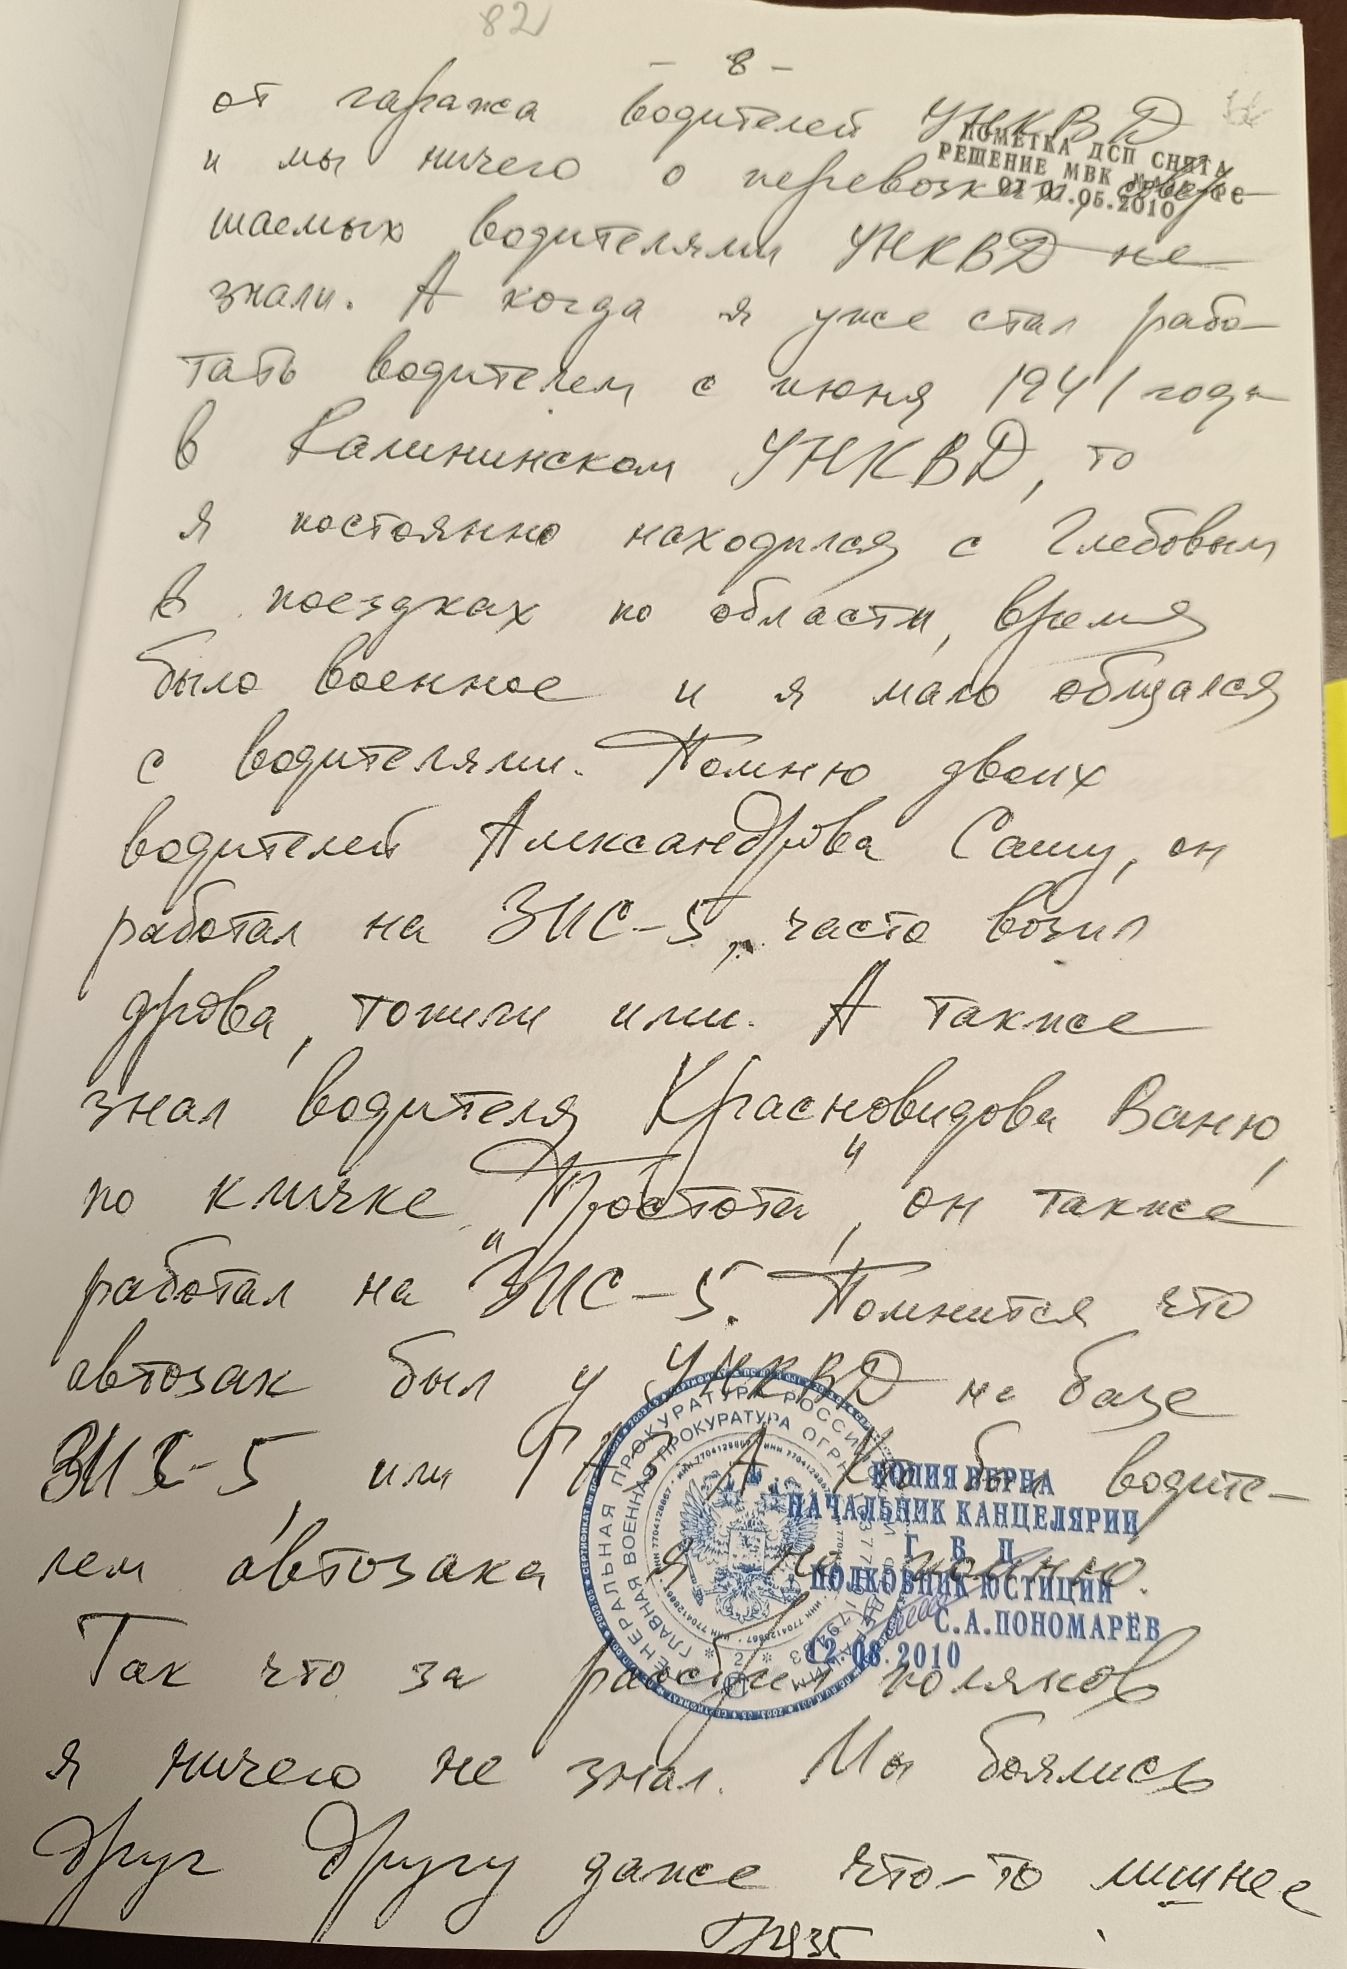 82
- 8 -
от гаража водителей УНКВД
ПОМЕТКА ДСП СНЯТА
РЕШЕНИЕ МВК
07.05.2010
и мы ничего о перевозках, совер-
шаемых водителями УНКВД не
знали. А когда я уже стал рабо-
тать водителем с июня 1941 года
в Калининском УНКВД, то
я постоянно находился с Глебовым
в поездках по области, время
было военное и я мало общался
с водителями. Помню двоих
водителей Александрова Сашу, он
работал на ЗИС-5, часто возил
дрова, топили ими. А также
знал водителя Красновидова Ваню,
по кличке "Простота", он также
работал на "ЗИС-5. Помнится что
автозак был у УНКВД на базе
ЗИС-5, или ГАЗ А. Кто был водите-
лем автозака я не помню.
ГЕНЕРАЛЬНАЯ ПРОКУРАТУРА РОССИЙСКОЙ ФЕДЕРАЦИИ
ГЛАВНАЯ ВОЕННАЯ ПРОКУРАТУРА
КОПИЯ ВЕРНА
НАЧАЛЬНИК КАНЦЕЛЯРИИ
Г В П
ПОЛКОВНИК ЮСТИЦИИ
С.А.ПОНОМАРЁВ
12 08 2010
Так что за расстрел поляков
я ничего не знал. Мы боялись
друг другу даже что-то лишнее